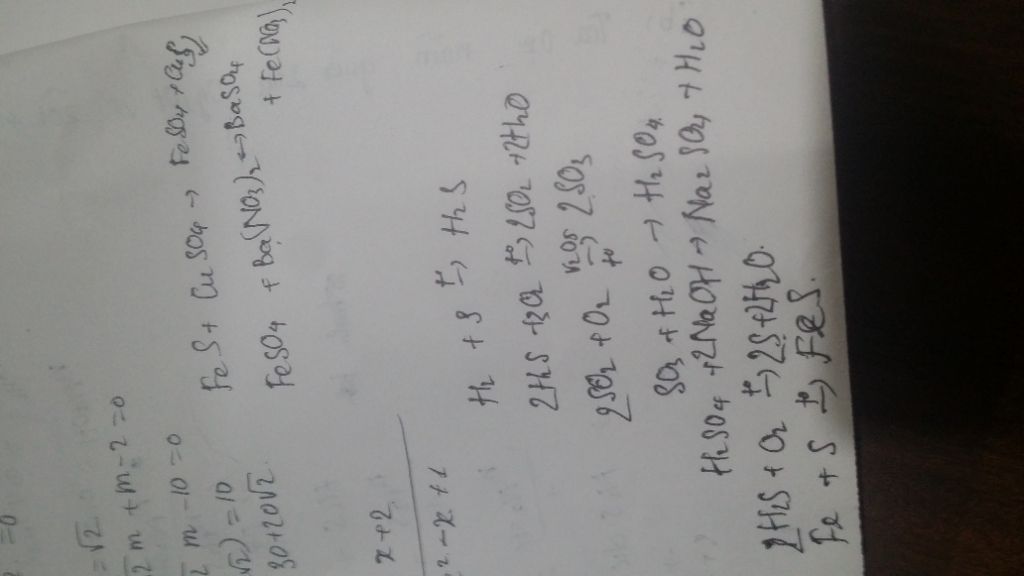 =0
=√2
√2 m + m - 2 = 0
m - 10 = 0
√2) = 10
30+20√2
x+2
² - x + 1
FeS + CuSO4 → FeSO4 + CuS
FeSO4 + Ba(NO3)2 → BaSO4
+ Fe(NO3)2
H2 + S t°→ H2S
2H2S + 3O2 t°→ 2SO2 + 2H2O
2SO2 + O2 V2O5→t° 2SO3
SO3 + H2O → H2SO4
H2SO4 + 2NaOH → Na2SO4 + H2O
2H2S + O2 t°→ 2S + 2H2O.
Fe + S t°→ FeS.